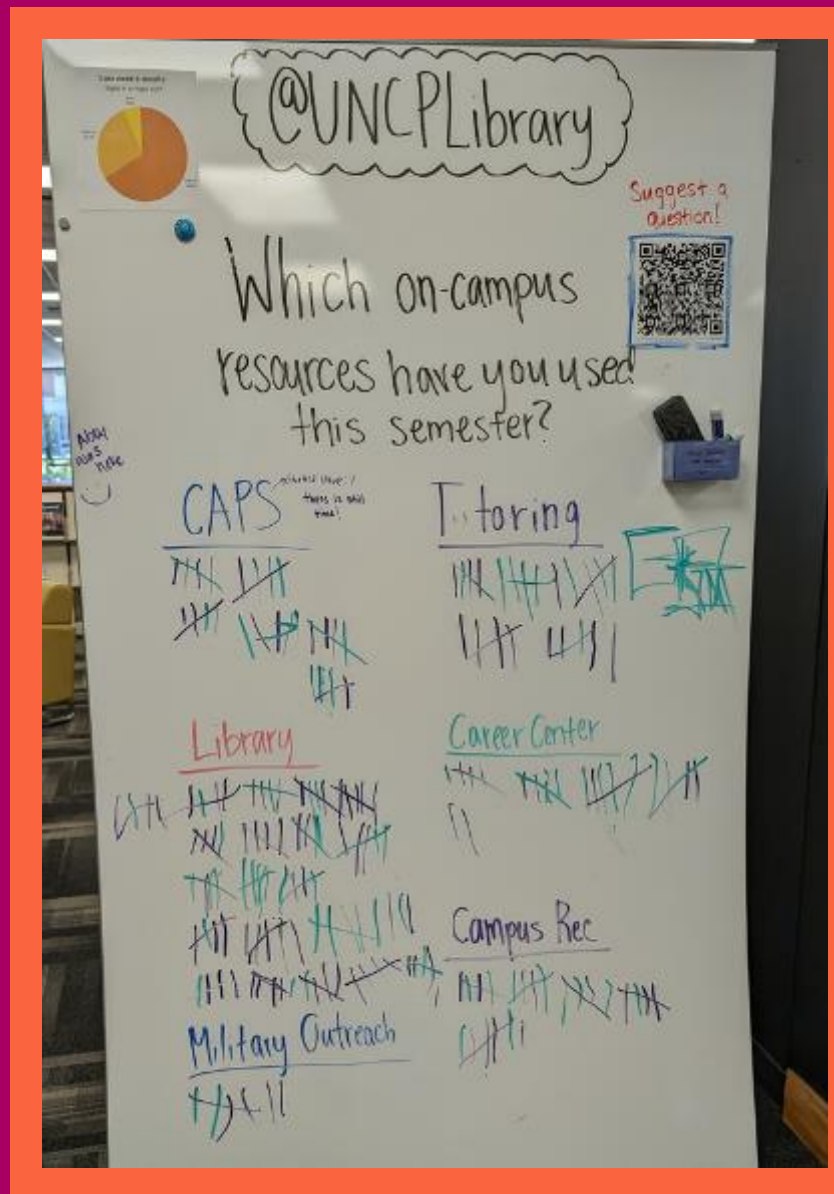 @UNCPLibrary
Suggest a
question!
Which on-campus
resources have you used
this semester?
was
here
CAPS
there is still
time!
T toring
Library
Career Center
Campus Rec
Military Outreach